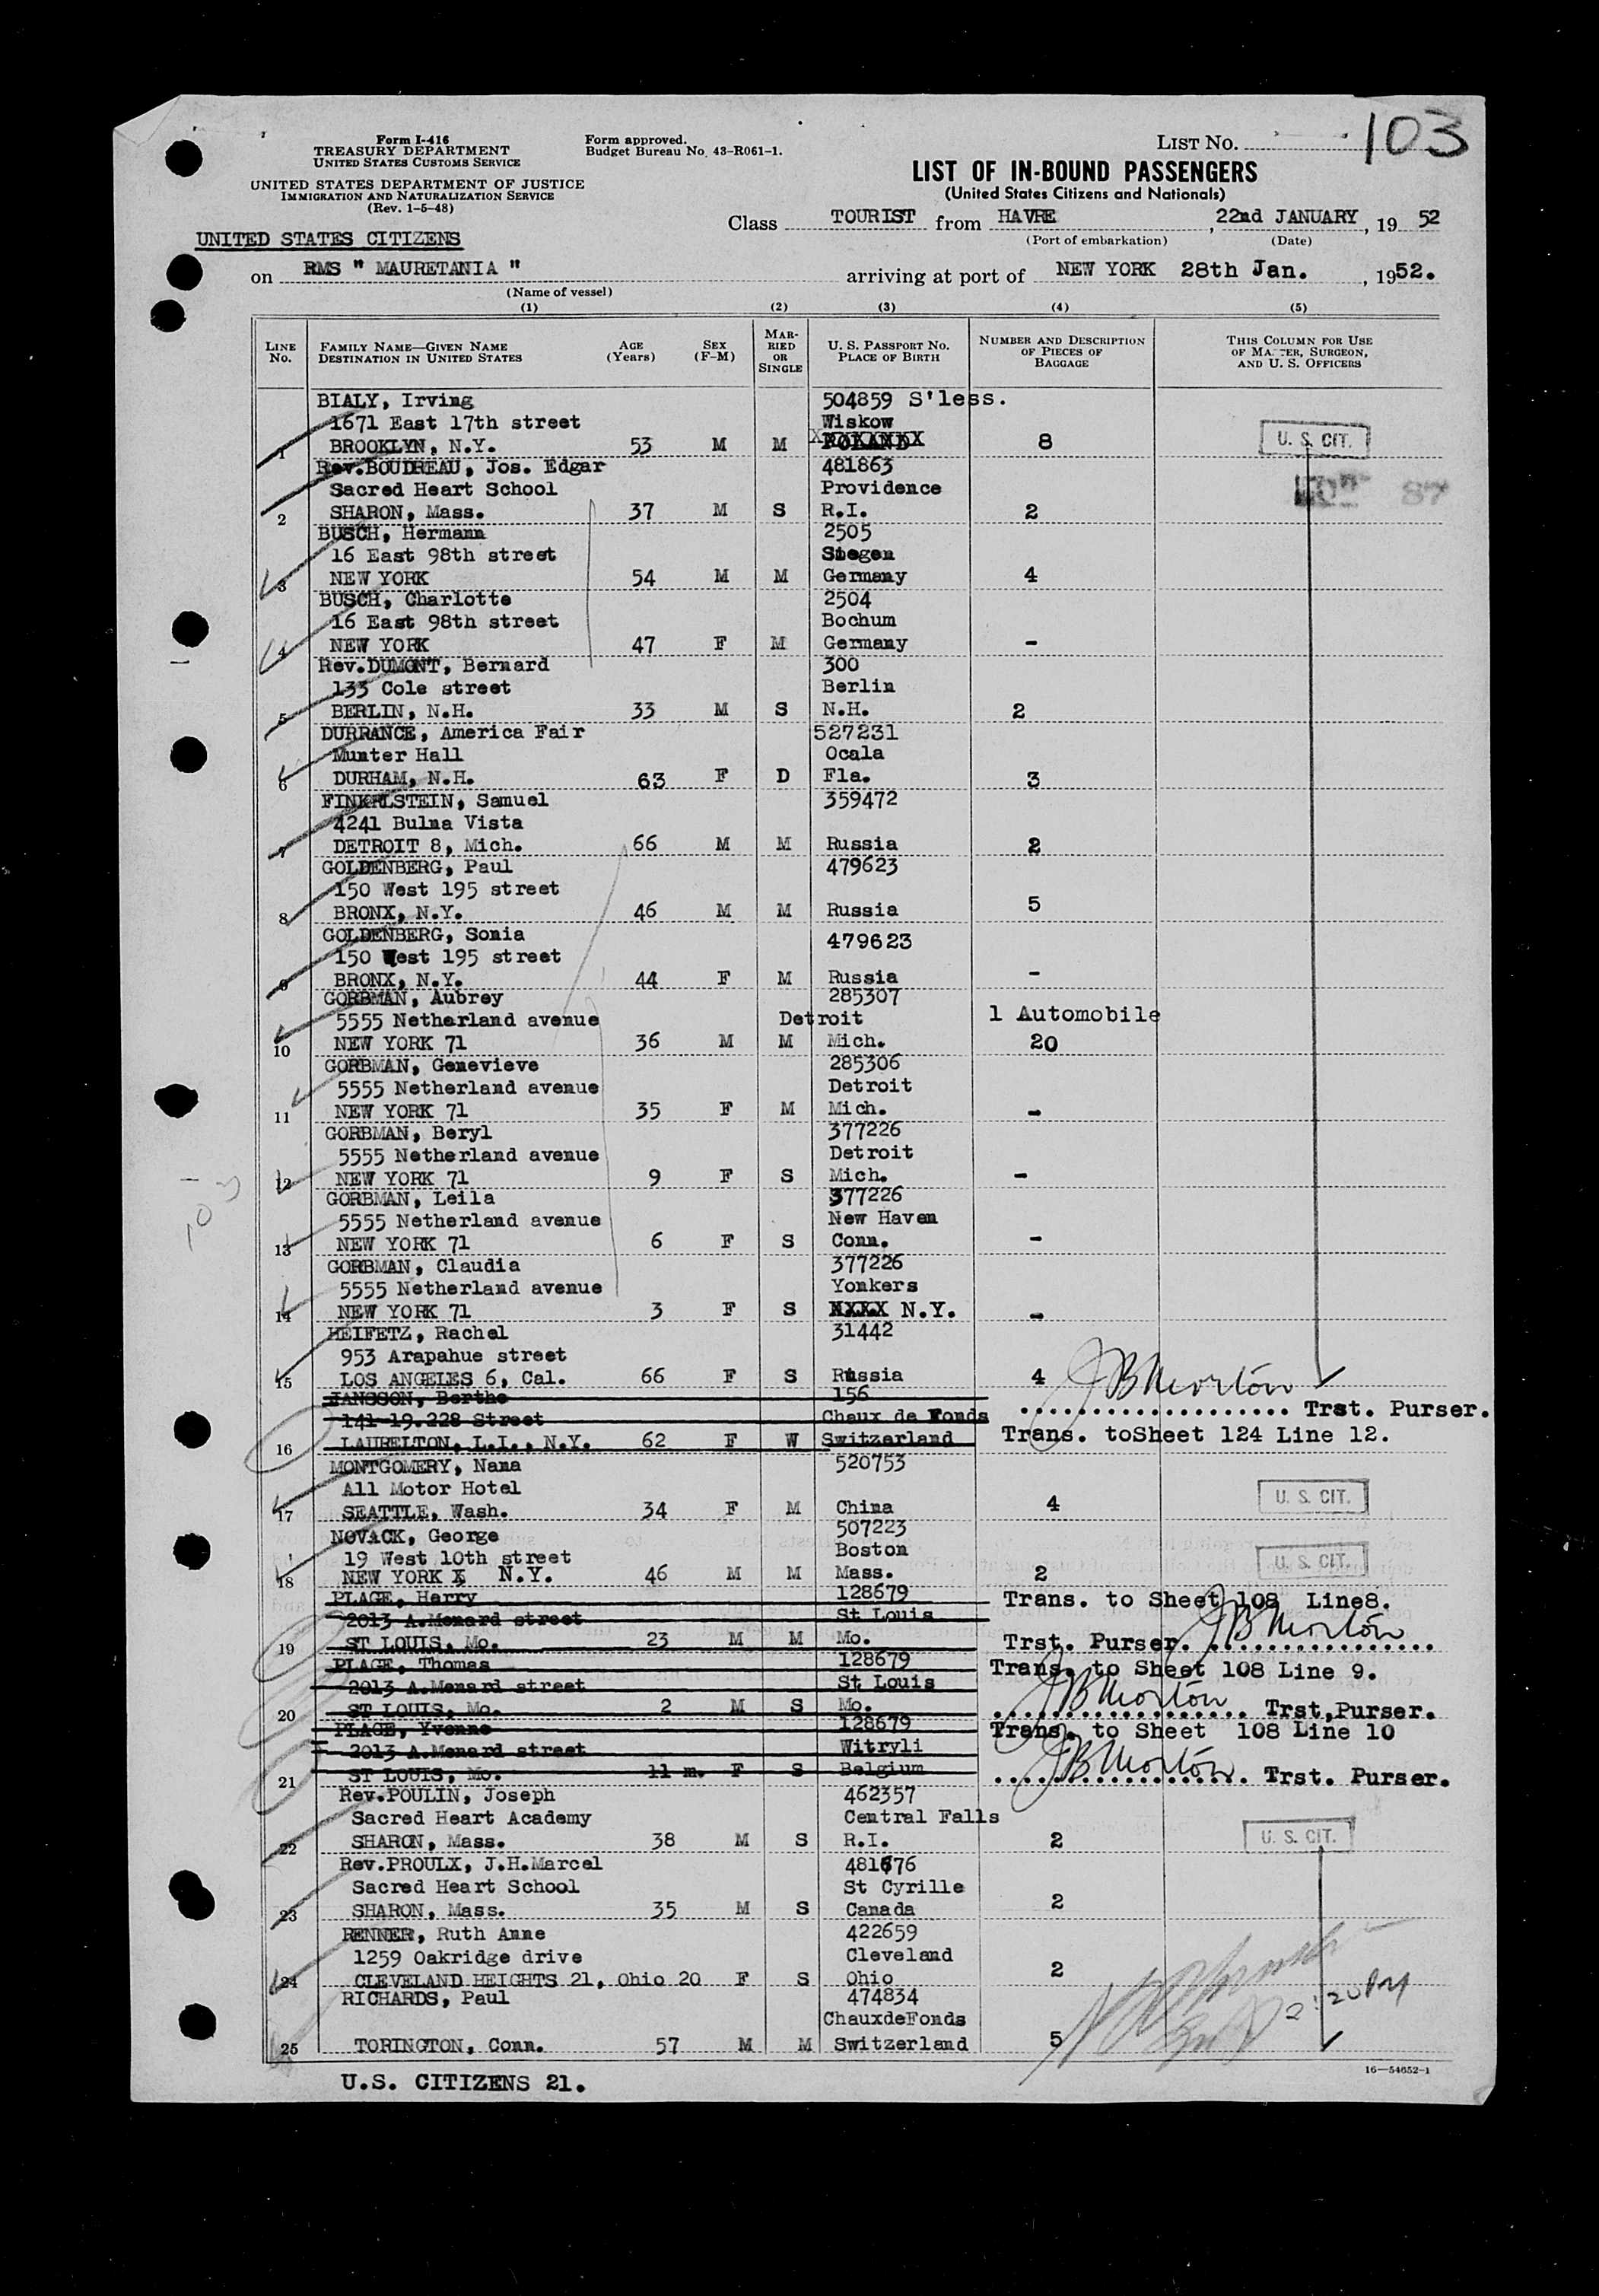 Form I-416
TREASURY DEPARTMENT
UNITED STATES CUSTOMS SERVICE
UNITED STATES DEPARTMENT OF JUSTICE
IMMIGRATION AND NATURALIZATION SERVICE
(Rev. 1-5-48)
Form approved.
Budget Bureau No. 43-R061-1.
LIST NO. 103
LIST OF IN-BOUND PASSENGERS
(United States Citizens and Nationals)
Class TOURIST from HAVRE, 22nd JANUARY, 19 52
(Port of embarkation) (Date)
UNITED STATES CITIZENS
on RMS " MAURETANIA " arriving at port of NEW YORK 28th Jan. , 1952.
(Name of vessel)
(1) (2) (3) (4) (5)
LINE NO. FAMILY NAME—GIVEN NAME DESTINATION IN UNITED STATES AGE (Years) SEX (F-M) MARRIED OR SINGLE U. S. PASSPORT NO. PLACE OF BIRTH NUMBER AND DESCRIPTION OF PIECES OF BAGGAGE THIS COLUMN FOR USE OF MASTER, SURGEON, AND U. S. OFFICERS
BIALY, Irving 504859 S'less.
1671 East 17th street Wiskow
1 BROOKLYN, N.Y. 53 M M POLAND 8 U. S. CIT.
Rev.BOUDREAU, Jos. Edgar 481863
Sacred Heart School Providence 87
2 SHARON, Mass. 37 M S R.I. 2
BUSCH, Hermann 2505
16 East 98th street Siegen
3 NEW YORK 54 M M Germany 4
BUSCH, Charlotte 2504
16 East 98th street Bochum
4 NEW YORK 47 F M Germany -
Rev.DUMONT, Bernard 300
133 Cole street Berlin
5 BERLIN, N.H. 33 M S N.H. 2
DURRANCE, America Fair 527231
Munter Hall Ocala
6 DURHAM, N.H. 63 F D Fla. 3
FINKELSTEIN, Samuel 359472
4241 Bulna Vista
7 DETROIT 8, Mich. 66 M M Russia 2
GOLDENBERG, Paul 479623
150 West 195 street
8 BRONX, N.Y. 46 M M Russia 5
GOLDENBERG, Sonia 479623
150 West 195 street
9 BRONX, N.Y. 44 F M Russia -
GORBMAN, Aubrey 285307
5555 Netherland avenue Detroit 1 Automobile
10 NEW YORK 71 36 M M Mich. 20
GORBMAN, Genevieve 285306
5555 Netherland avenue Detroit
11 NEW YORK 71 35 F M Mich. -
GORBMAN, Beryl 377226
5555 Netherland avenue Detroit
12 NEW YORK 71 9 F S Mich. -
GORBMAN, Leila 377226
5555 Netherland avenue New Haven
13 NEW YORK 71 6 F S Conn. -
GORBMAN, Claudia 377226
5555 Netherland avenue Yonkers
14 NEW YORK 71 3 F S XXXX N.Y. -
HEIFETZ, Rachel 31442
953 Arapahue street
15 LOS ANGELES 6, Cal. 66 F S Russia 4 JB Morton
JANSSON, Berthe 156 Trst. Purser.
141-19.228 Street Chaux de Fonds
16 LAURELTON, L.I., N.Y. 62 F W Switzerland Trans. toSheet 124 Line 12.
MONTGOMERY, Nana 520753
All Motor Hotel
17 SEATTLE, Wash. 34 F M China 4 U. S. CIT.
NOVACK, George 507223
19 West 10th street Boston
18 NEW YORK X N.Y. 46 M M Mass. 2 U. S. CIT.
PLAGE, Harry 128679 Trans. to Sheet 108 Line8.
2013 A.Menard street St Louis
19 ST LOUIS, Mo. 23 M M Mo. Trst. Purser. JB Morton
PLAGE, Thomas 128679 Trans. to Sheet 108 Line 9.
2013 A.Menard street St Louis
20 ST LOUIS, Mo. 2 M S Mo. JB Morton Trst,Purser.
PLAGE, Yvonne 128679 Trans. to Sheet 108 Line 10
2013 A.Menard street Witryli
21 ST LOUIS, Mo. 11 m. F S Belgium JB Morton Trst. Purser.
Rev.POULIN, Joseph 462357
Sacred Heart Academy Central Falls
22 SHARON, Mass. 38 M S R.I. 2 U. S. CIT.
Rev.PROULX, J.H.Marcel 481676
Sacred Heart School St Cyrille
23 SHARON, Mass. 35 M S Canada 2
RENNER, Ruth Anne 422659
1259 Oakridge drive Cleveland
24 CLEVELAND HEIGHTS 21, Ohio 20 F S Ohio 2
RICHARDS, Paul 474834
ChauxdeFonds 2:20 PM
25 TORINGTON, Conn. 57 M M Switzerland 5
16—54652-1
U.S. CITIZENS 21.
103